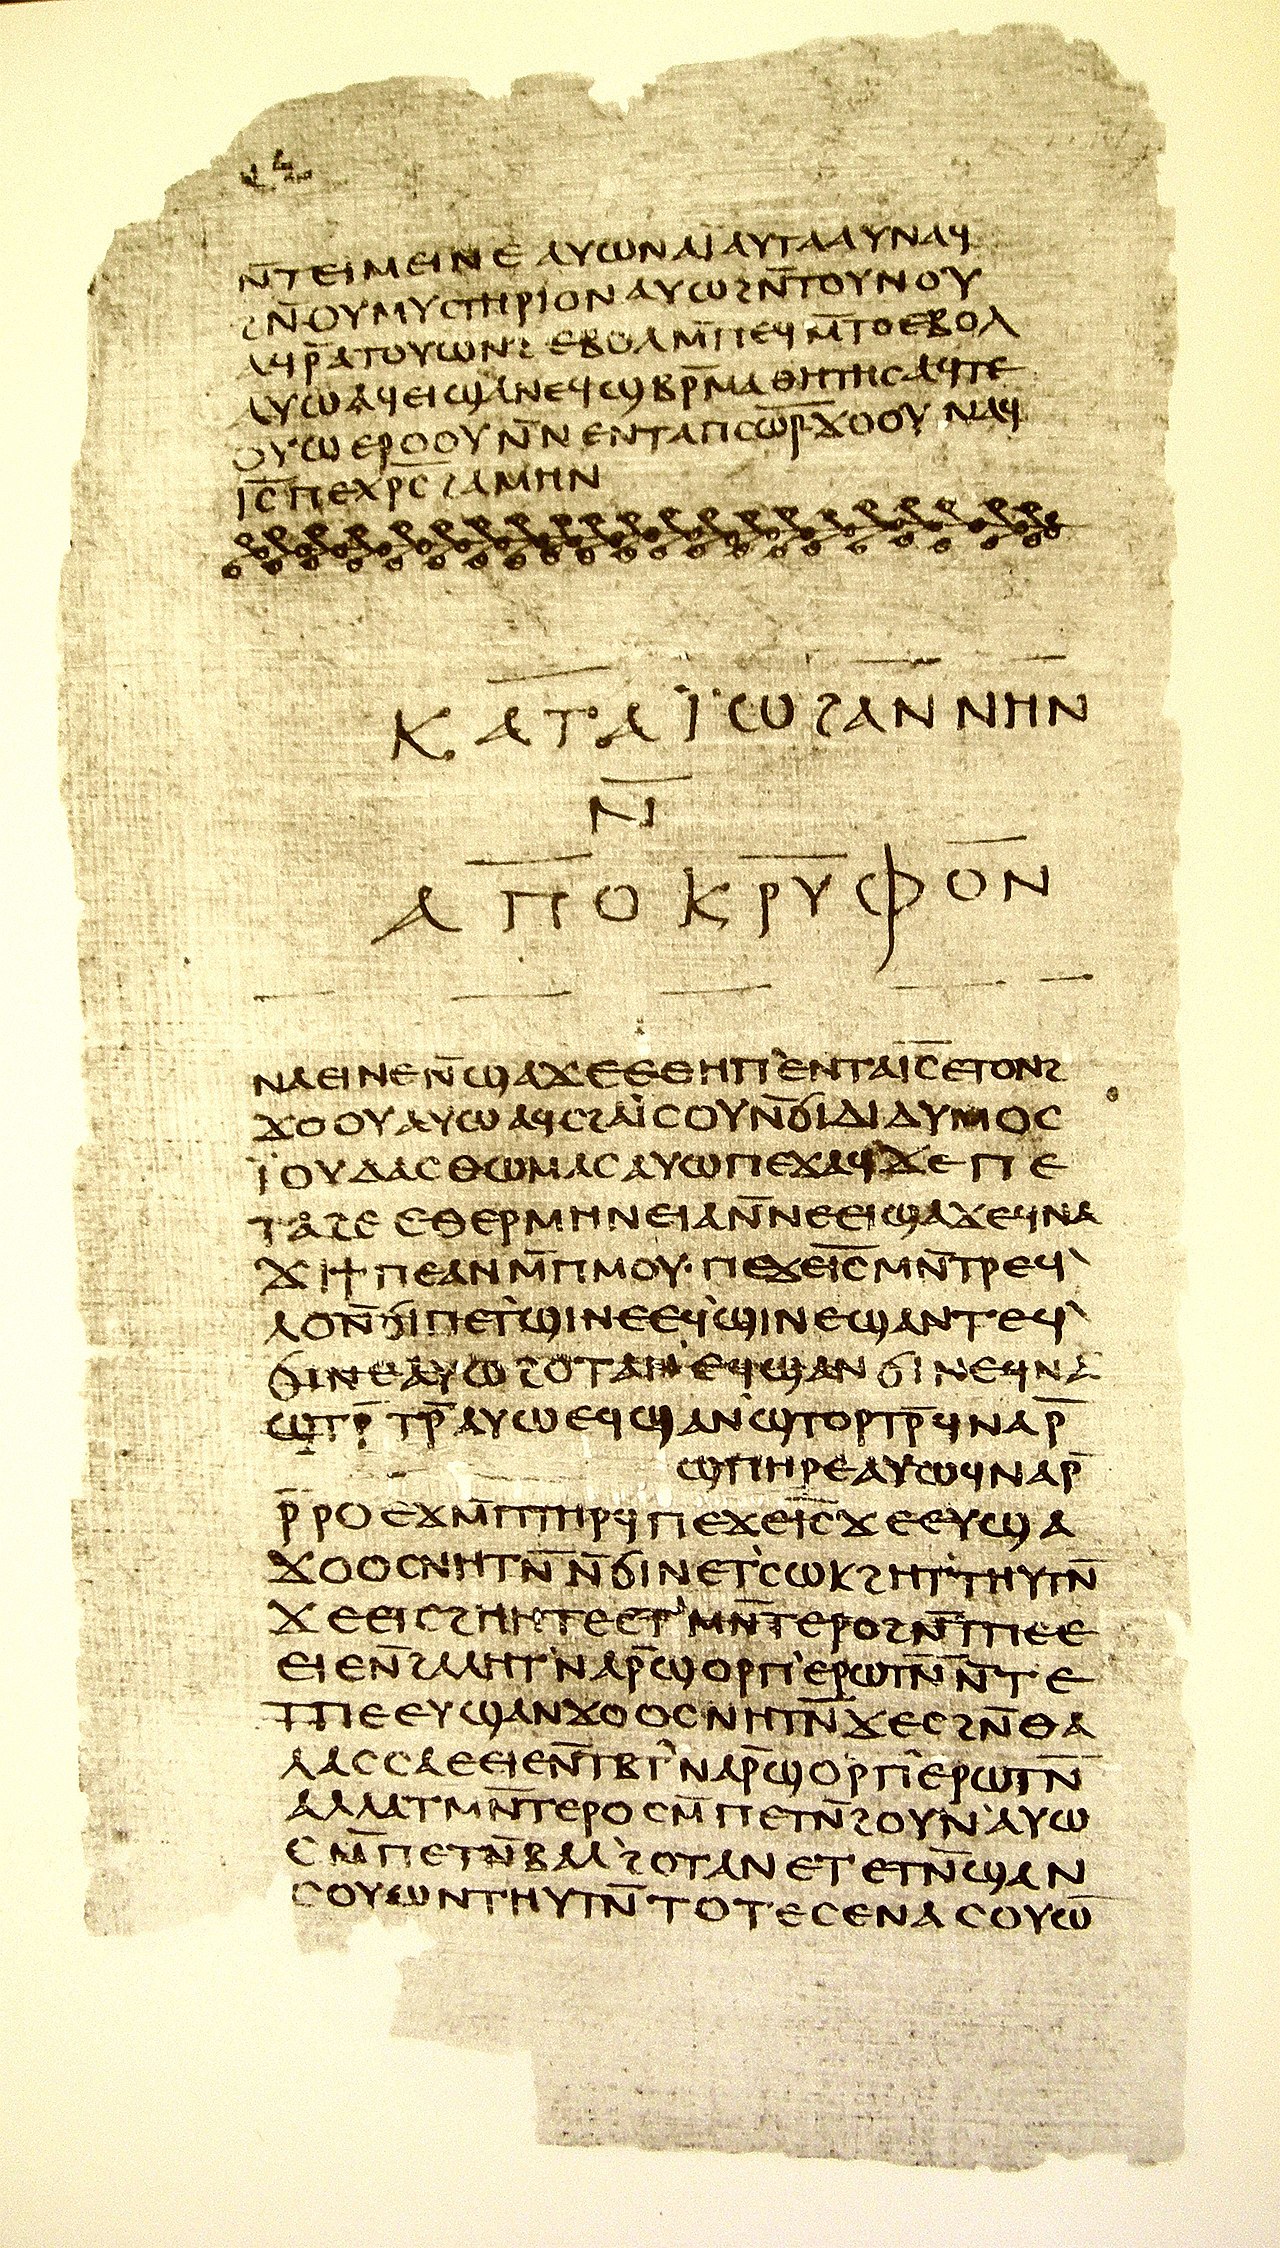 ⲛ̄ⲧⲉⲓⲙⲉⲓⲛⲉ ⲁⲩⲱ ⲛⲁⲓ̈ ⲁⲩⲧⲁⲁⲩ ⲛⲁϥ
ϩⲛ̄ ⲟⲩⲙⲩⲥⲧⲏⲣⲓⲟⲛ ⲁⲩⲱ ϩⲛ̄ ⲧⲟⲩⲛⲟⲩ
ⲁϥⲣ̄ ⲁⲧⲟⲩⲱⲛϩ ⲉⲃⲟⲗ ⲙ̄ⲡⲉϥⲙ̄ⲧⲟ ⲉⲃⲟⲗ
ⲁⲩⲱ ⲁϥⲉⲓ ϣⲁ ⲛⲉϥϣⲃⲣ̄ⲙⲁⲑⲏⲧⲏⲥ ⲁϥϯⲉ
ⲟⲩⲱ ⲉⲣⲟⲟⲩ ⲛ̄ⲛⲉⲛⲧⲁ ⲡⲥⲱ̅ⲣ̅ ϫⲟⲟⲩ ⲛⲁϥ
ⲓ̅ⲥ̅ ⲡⲉⲭⲣ̅ⲥ̅ ϩⲁⲙⲏⲛ
ⲕⲁⲧⲁ ⲓ̈ⲱϩⲁⲛⲛⲏⲛ
ⲛ̄
ⲁⲡⲟⲕⲣⲩⲫⲟⲛ
ⲛⲁⲉⲓ ⲛⲉ ⲛ̄ϣⲁϫⲉ ⲉⲑⲏⲡ` ⲉⲛⲧⲁ ⲓ̅ⲥ̅ ⲉⲧⲟⲛϩ
ϫⲟⲟⲩ ⲁⲩⲱ ⲁϥⲥϩⲁⲓ̈ⲥⲟⲩ ⲛ̄ϭⲓ ⲇⲓⲇⲩⲙⲟⲥ
ⲓ̈ⲟⲩⲇⲁⲥ ⲑⲱⲙⲁⲥ ⲁⲩⲱ ⲡⲉϫⲁϥ ϫⲉ ⲡⲉ
ⲧⲁϩⲉ ⲉⲑⲉⲣⲙⲏⲛⲉⲓⲁ ⲛ̄ⲛⲉⲉⲓϣⲁϫⲉ ϥⲛⲁ
ϫⲓ ϯⲡⲉ ⲁⲛ ⲙ̄ⲡⲙⲟⲩ· ⲡⲉϫⲉ ⲓ̅ⲥ̅ ⲙⲛ̄ⲧⲣⲉϥ`
ⲗⲟ ⲛ̄ϭⲓ ⲡⲉⲧ`ϣⲓⲛⲉ ⲉϥ`ϣⲓⲛⲉ ϣⲁⲛⲧⲉϥ`
ϭⲓⲛⲉ ⲁⲩⲱ ϩⲟⲧⲁⲛ` ⲉϥϣⲁⲛϭⲓⲛⲉ ϥⲛⲁ
ϣⲧⲣ̄ⲧⲣ̄ ⲁⲩⲱ ⲉϥϣⲁⲛ`ϣⲧⲟⲣⲧⲣ̄ ϥⲛⲁⲣ̄
ϣⲡⲏⲣⲉ ⲁⲩⲱ ϥⲛⲁⲣ̄
ⲣ̄ⲣⲟ ⲉϫⲙ̄ ⲡⲧⲏⲣϥ ⲡⲉϫⲉ ⲓ̅ⲥ̅ ϫⲉ ⲉⲩϣⲁ
ϫⲟⲟⲥ ⲛⲏⲧⲛ̄ ⲛ̄ϭⲓ ⲛⲉⲧ`ⲥⲱⲕ ϩⲏⲧ` ⲧⲏⲩⲧⲛ̄
ϫⲉ ⲉⲓⲥϩⲏⲏⲧⲉ ⲉⲧ`ⲙⲛ̄ⲧⲉⲣⲟ ϩⲛ̄ ⲧⲡⲉ ⲉ
ⲉⲓⲉ ⲛ̄ϩⲁⲗⲏⲧ` ⲛⲁⲣ̄ ϣⲟⲣⲡ` ⲉⲣⲱⲧⲛ̄ ⲛ̄ⲧⲉ
ⲧⲡⲉ ⲉⲩϣⲁⲛϫⲟⲟⲥ ⲛⲏⲧⲛ̄ ϫⲉ ⲥϩⲛ̄ ⲑⲁ
ⲗⲁⲥⲥⲁ ⲉⲉⲓⲉ ⲛ̄ⲧⲃⲧ` ⲛⲁⲣ̄ ϣⲟⲣⲡ` ⲉⲣⲱⲧⲛ̄
ⲁⲗⲗⲁ ⲧⲙⲛ̄ⲧⲉⲣⲟ ⲥⲙ̄ⲡⲉⲧⲛ̄ϩⲟⲩⲛ` ⲁⲩⲱ
ⲥⲙ̄ⲡⲉⲧⲛ̄ⲃⲁⲗ` ϩⲟⲧⲁⲛ ⲉⲧⲉⲧⲛ̄ϣⲁⲛ
ⲥⲟⲩⲱⲛ ⲧⲏⲩⲧⲛ̄ ⲧⲟⲧⲉ ⲥⲉⲛⲁⲥⲟⲩⲱ̅